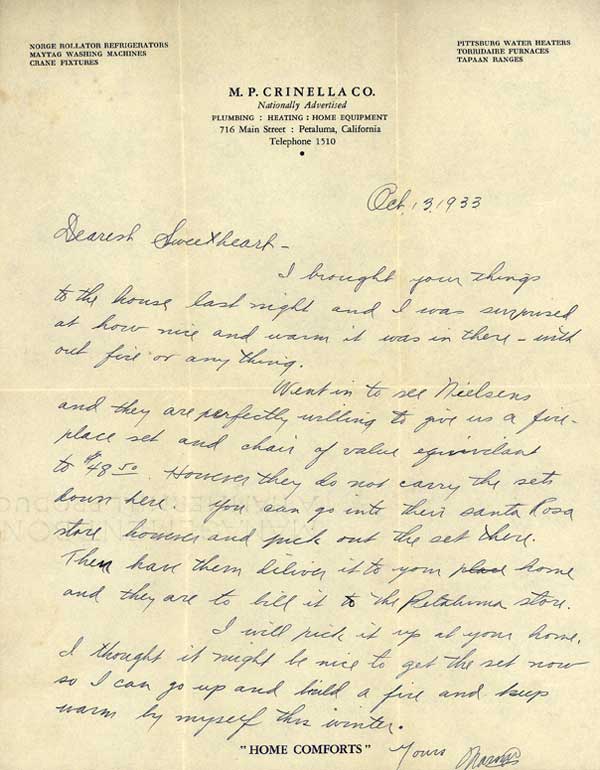 NORGE ROLLATOR REFRIGERATORS
MAYTAG WASHING MACHINES
CRANE FIXTURES
PITTSBURG WATER HEATERS
TORRIDAIRE FURNACES
TAPAAN RANGES
M. P. CRINELLA CO.
Nationally Advertised
PLUMBING : HEATING : HOME EQUIPMENT
716 Main Street : Petaluma, California
Telephone 1510
Oct. 13, 1933
Dearest Sweetheart -
I brought your things
to the house last night and I was surprised
at how nice and warm it was in there - with
out fire or any thing.
Went in to see Nielsens
and they are perfectly willing to give us a fire-
place set and chair of value equivilant
to $48.50. However they do not carry the sets
down here. You can go into their Santa Rosa
store however and pick out the set there.
Then have them deliver it to your place home
and they are to bill it to the Petaluma store.
I will pick it up at your home.
I thought it might be nice to get the set now
so I can go up and build a fire and keep
warm by myself this winter.
Yours
"HOME COMFORTS"